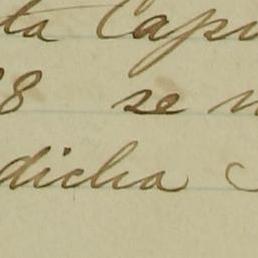 ta Capi
8 se
dicha